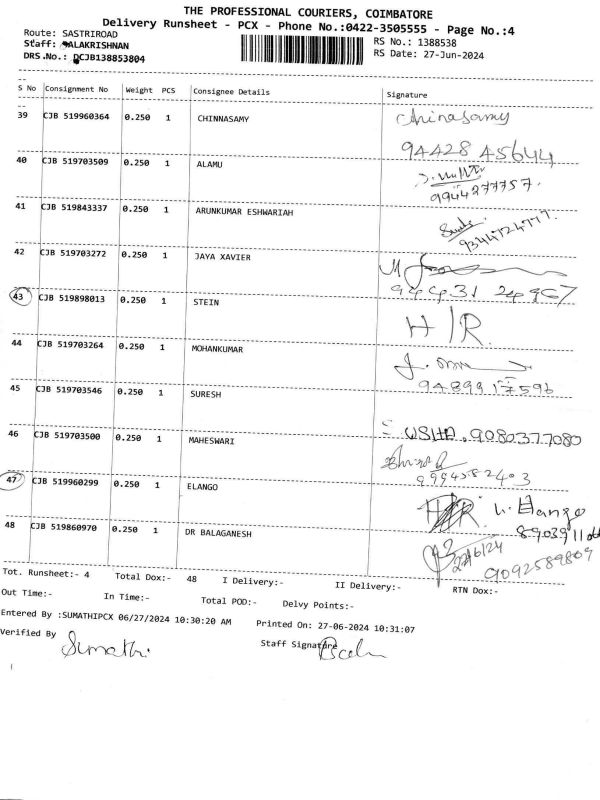 THE PROFESSIONAL COURIERS, COIMBATORE
Delivery Runsheet - PCX - Phone No.:0422-3505555 - Page No.:4
Route: SASTRIROAD
Staff: ALAKRISHNAN
RS No.: 1388538
DRS.No.: DCJB138853804
RS Date: 27-Jun-2024
S No Consignment No Weight PCS Consignee Details Signature
39 CJB 519960364 0.250 1 CHINNASAMY Chinasamy
94428 45644
40 CJB 519703509 0.250 1 ALAMU
9944277757.
41 CJB 519843337 0.250 1 ARUNKUMAR ESHWARIAH
42 CJB 519703272 0.250 1 JAYA XAVIER
94431 24967
43 CJB 519898013 0.250 1 STEIN H/R.
44 CJB 519703264 0.250 1 MOHANKUMAR
9489917596
45 CJB 519703546 0.250 1 SURESH
USHA. 9080377080
46 CJB 519703500 0.250 1 MAHESWARI
9994582403
47 CJB 519960299 0.250 1 ELANGO H/R V. Elango
48 CJB 519860970 0.250 1 DR BALAGANESH
9092589809
Tot. Runsheet:- 4 Total Dox:- 48 I Delivery:- II Delivery:- RTN Dox:-
Out Time:- In Time:- Total POD:- Delvy Points:-
Entered By :SUMATHIPCX 06/27/2024 10:30:20 AM Printed On: 27-06-2024 10:31:07
Verified By Sumathi Staff Signature